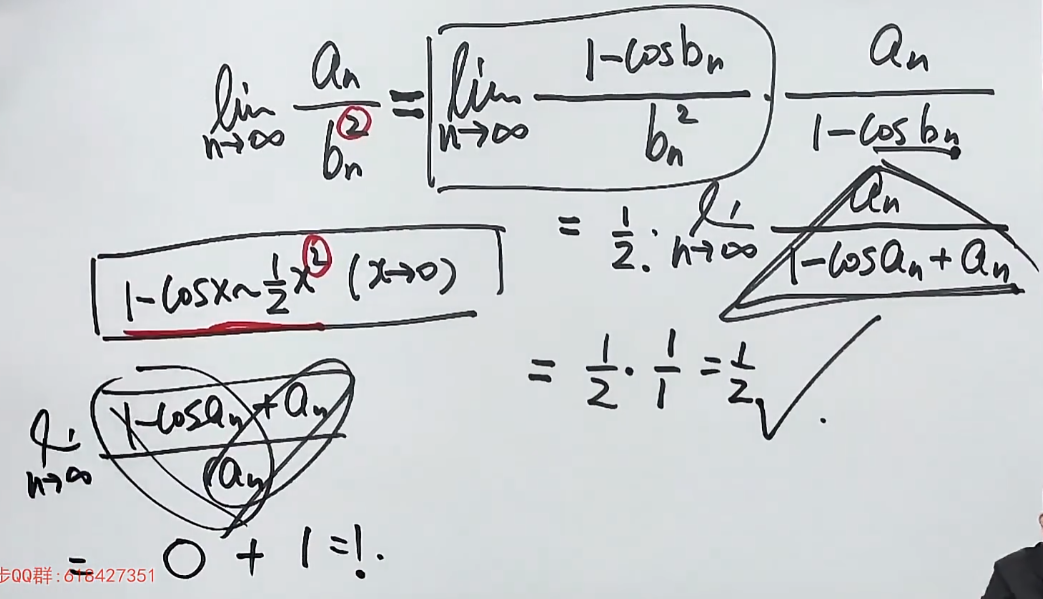 lim n→∞ aₙ/bₙ² = lim n→∞ (1-cosbₙ)/bₙ² · aₙ/(1-cosbₙ)
= 1/2 · lim n→∞ aₙ/(1-cosaₙ+aₙ)
1-cosx~1/2x² (x→0)
= 1/2 · 1/1 = 1/2 √.
lim n→∞ (1-cosaₙ+aₙ)/aₙ
= 0 + 1 = 1.
步QQ群:618427351